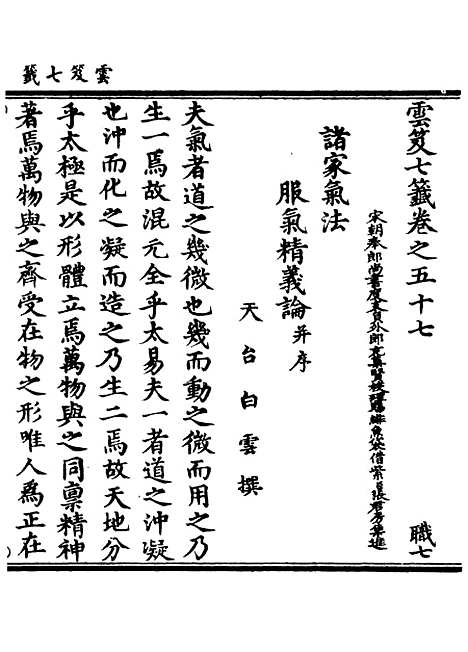 雲笈七籤
雲笈七籤卷之五十七 職七
宋朝奉郎尚書度支員外郎充集賢校理賜緋魚袋借紫臣張君房集進
諸家氣法
服氣精義論并序
天台白雲撰
夫氣者道之幾微也幾而動之微而用之乃
生一焉故混元全乎太易夫一者道之沖凝
也沖而化之凝而造之乃生二焉故天地分
乎太極是以形體立焉萬物與之同禀精神
著焉萬物與之齊受在物之形唯人為正在